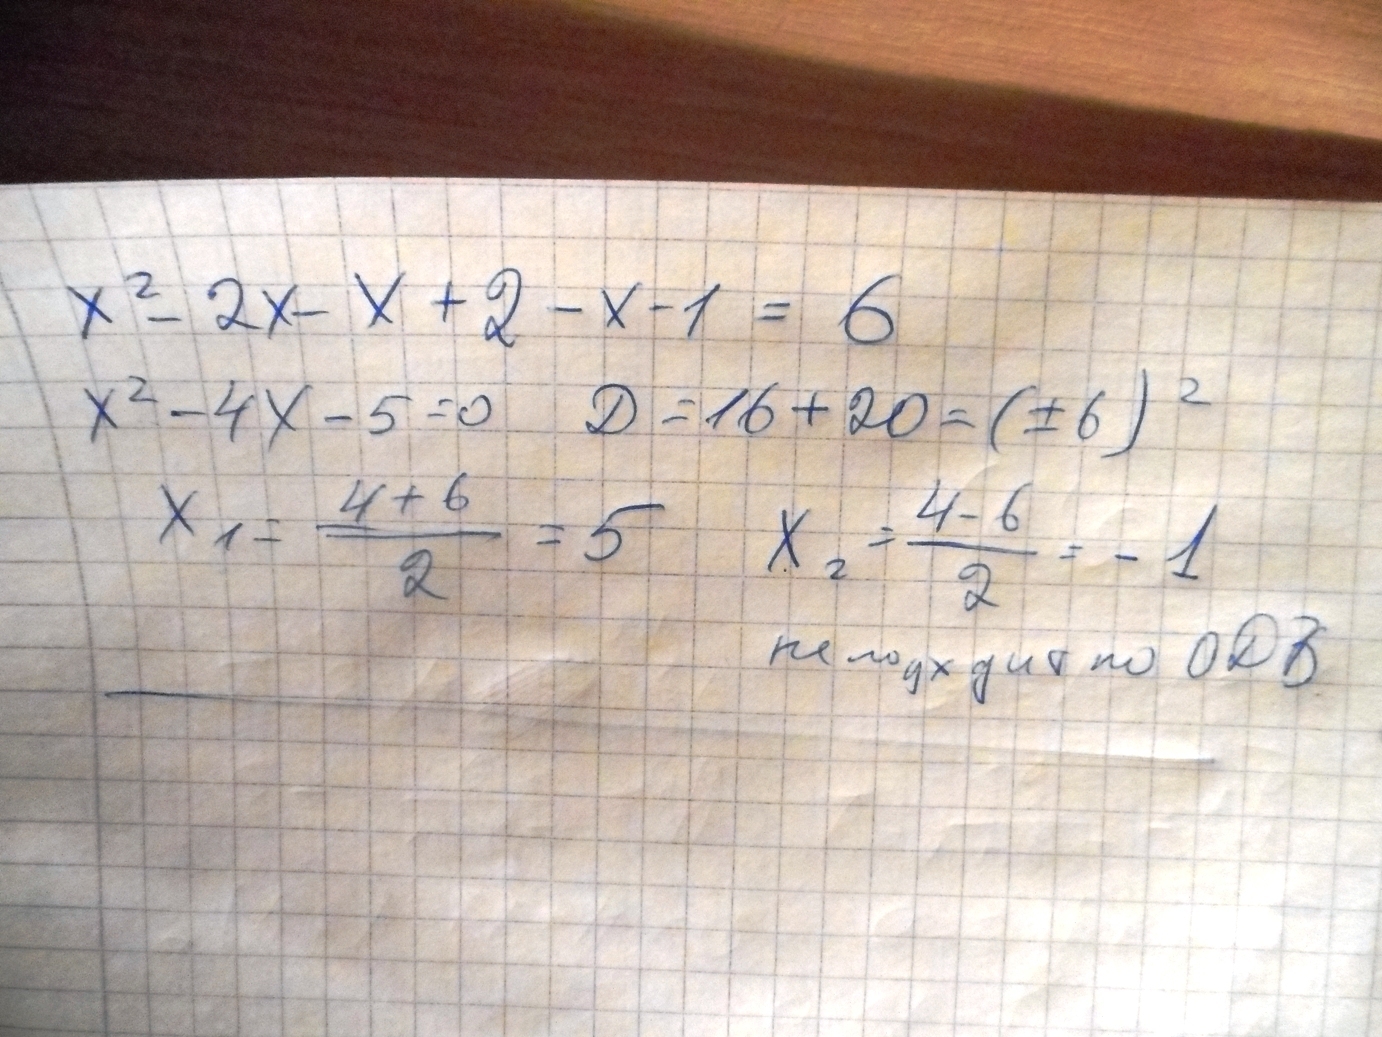 x² - 2x - x + 2 - x - 1 = 6
x² - 4x - 5 = 0 D = 16 + 20 = (±6)²
x₁ = (4+6)/2 = 5 x₂ = (4-6)/2 = -1
не подходит по ОДЗ